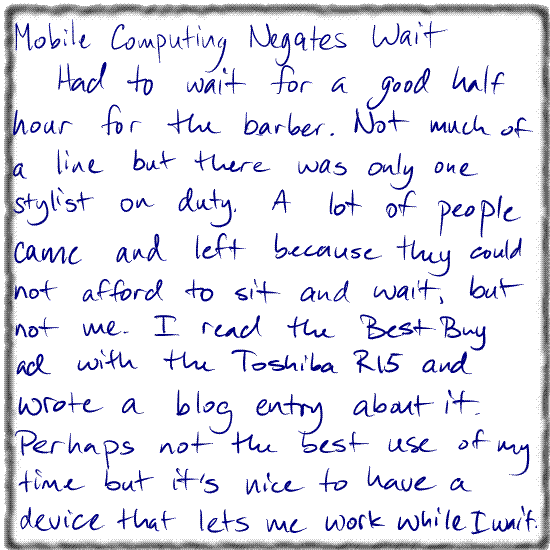 Mobile Computing Negates Wait
Had to wait for a good half
hour for the barber. Not much of
a line but there was only one
stylist on duty. A lot of people
came and left because they could
not afford to sit and wait, but
not me. I read the Best Buy
ad with the Toshiba R15 and
wrote a blog entry about it.
Perhaps not the best use of my
time but it's nice to have a
device that lets me work while I wait.